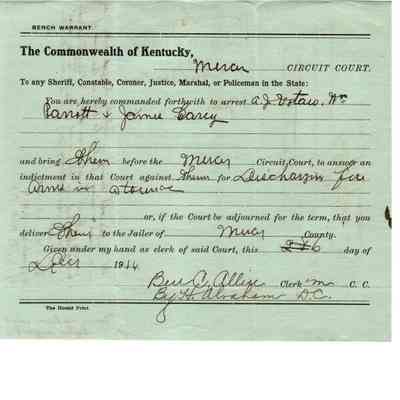 BENCH WARRANT.
The Commonwealth of Kentucky,
Mercer CIRCUIT COURT.
To any Sheriff, Constable, Coroner, Justice, Marshal, or Policeman in the State:
You are hereby commanded forthwith to arrest A. J. Votaw, Wm
Parrott & Jamie Carey
and bring them before the Mercer Circuit Court, to answer an
indictment in that Court against them for Discharging fire
arms in
or, if the Court be adjourned for the term, that you
deliver them to the Jailer of Mercer County.
Given under my hand as clerk of said Court, this day of
1914
Ben C. Allin Clerk M C. C.
By H. Abraham D.C.
The Herald Print.